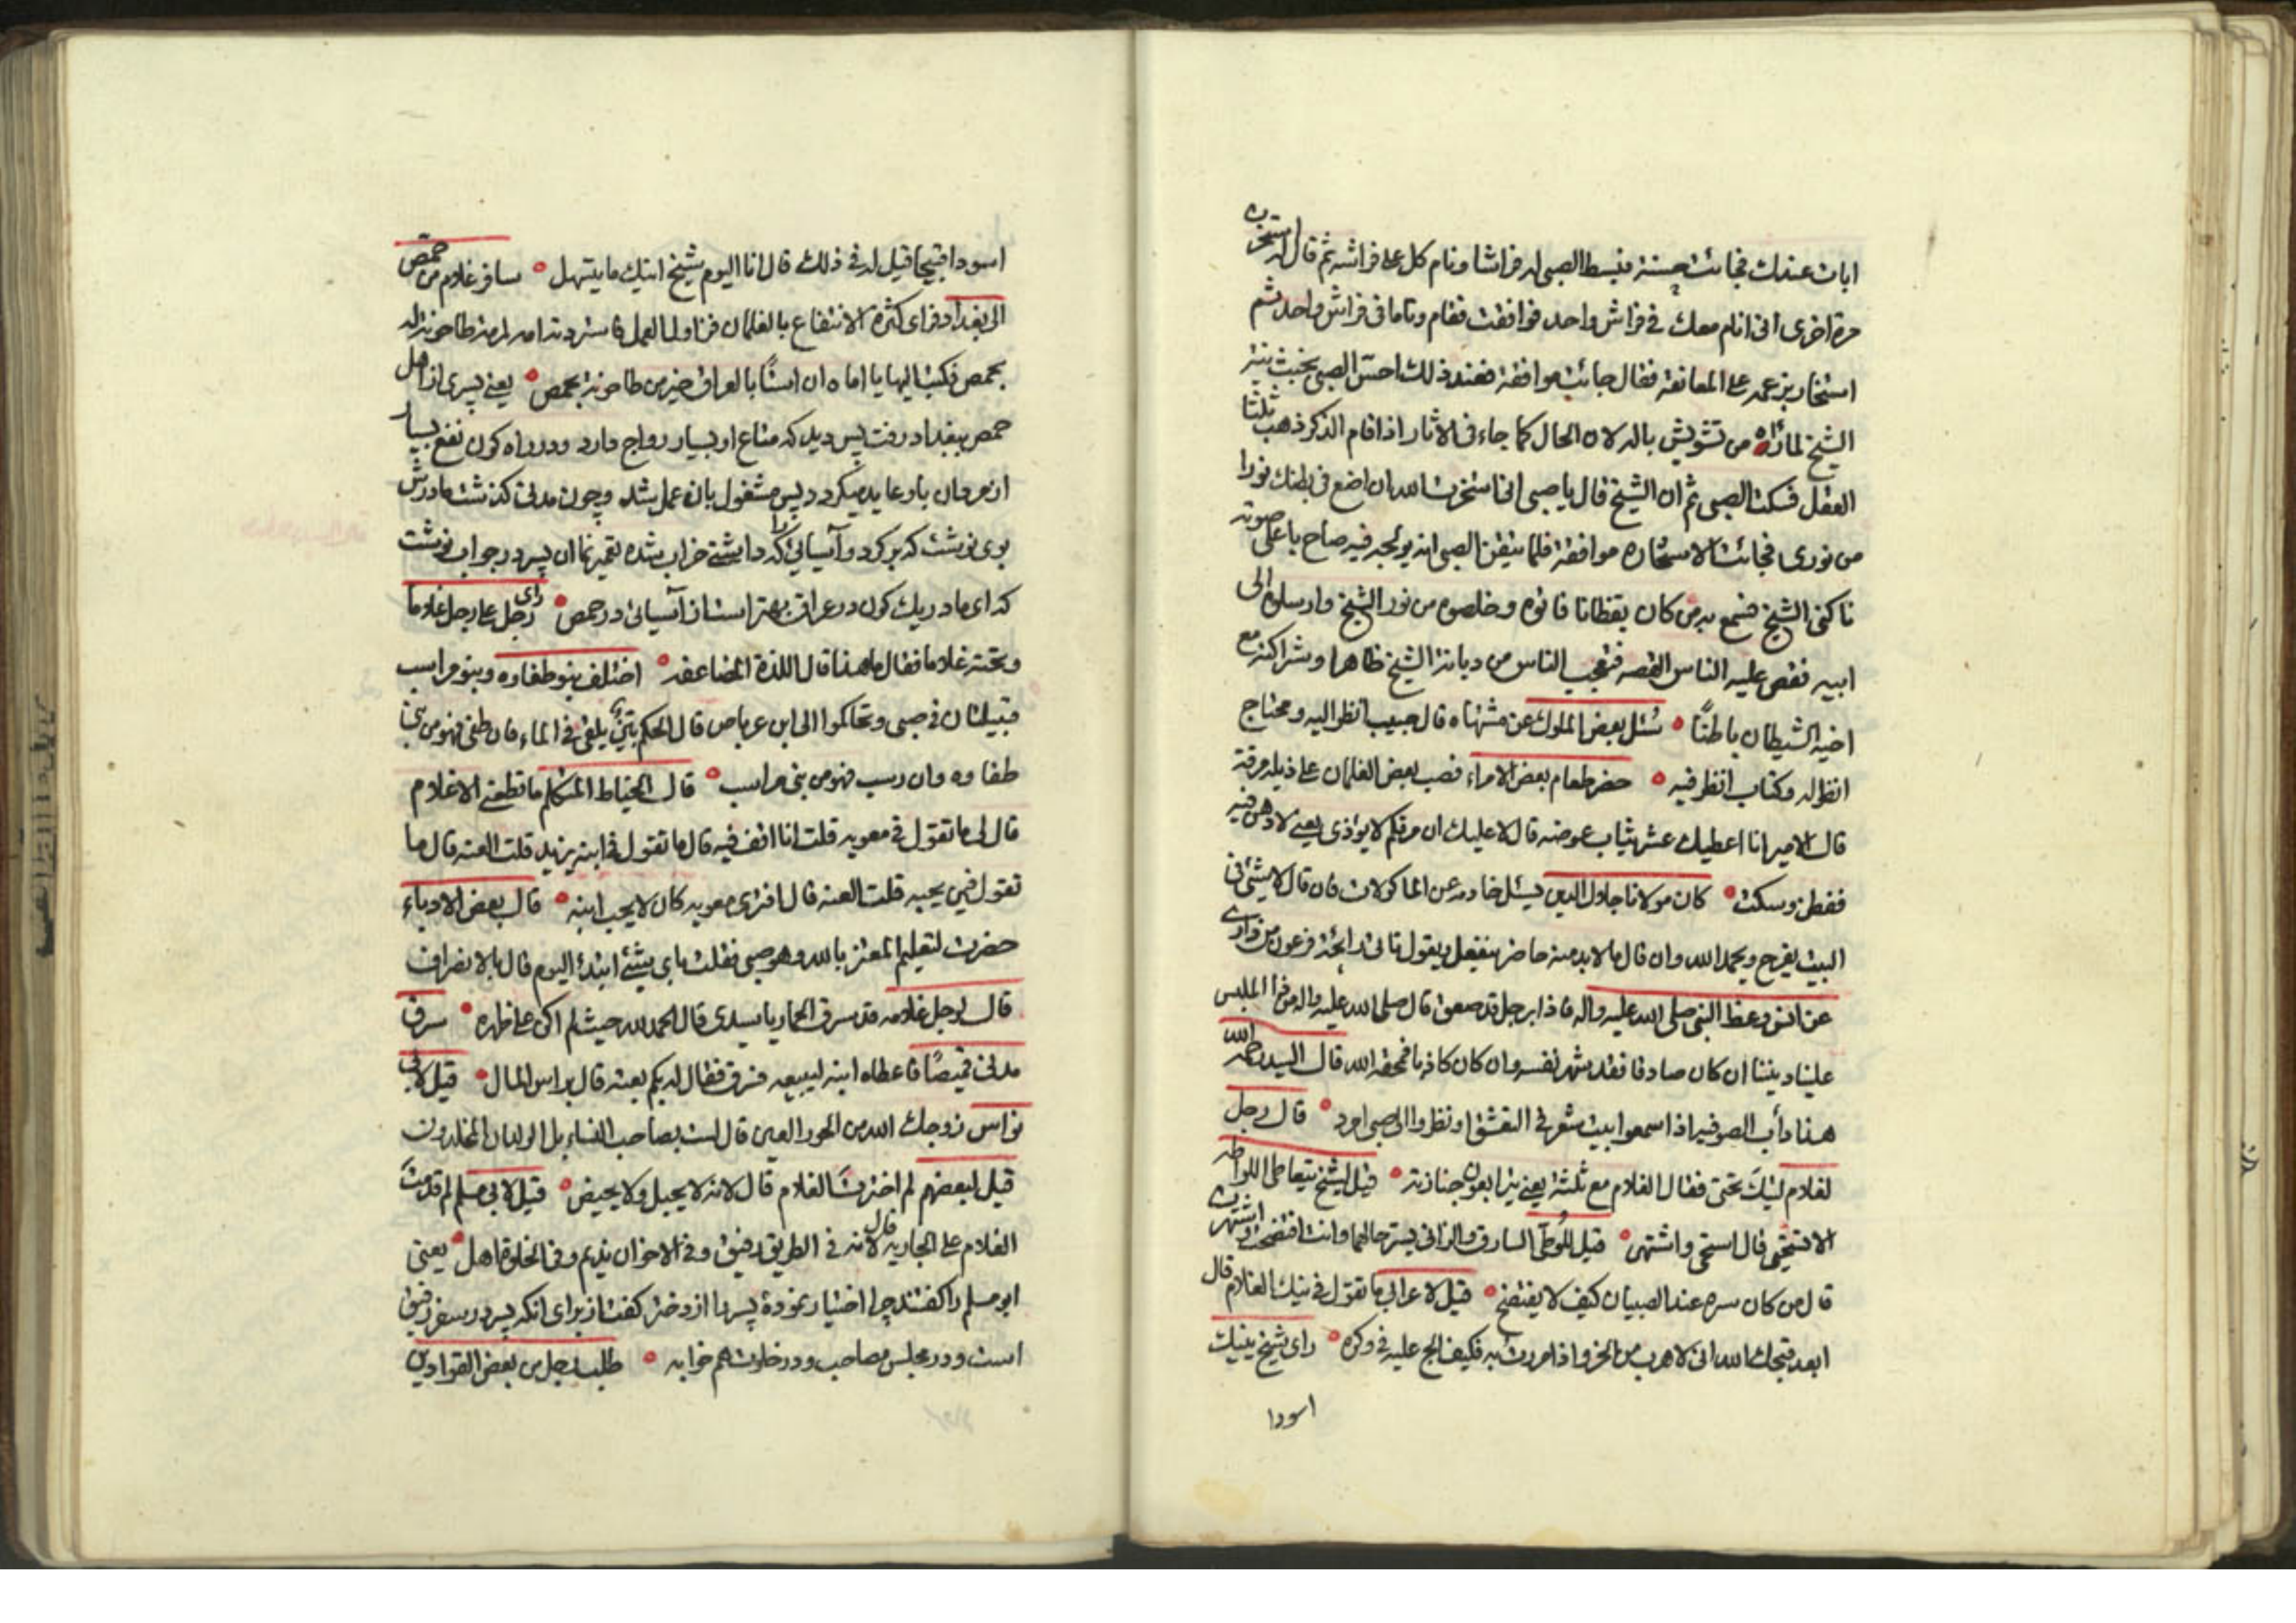 ابات عندك فجائت حسنة فبسط الصبي له فراشا ونام كل على فراشه ثم قال له استخرت
مرة اخرى اني انام معك في فراش واحد فوافقت فقام وناما في فراش واحد ثم
استخار بزعمه على المعانقة فقال جائت موافقة فعند ذلك احس الصبي بخبث نية
الشيخ لما رآه من تشويش باله لان الحال كما جاء في الاثار اذا قام الذكر ذهب ثلثا
العقل فسكت الصبي ثم ان الشيخ قال يا صبي انا استخرت الله ان اضع في بطنك نورا
من نوري فجائت الاستخاره موافقة فلما تيقن الصبي انه يولجه فيه صاح باعلى صوته
ناكني الشيخ فسمع به من كان يقظانا فاتوه وخلصوه من نور الشيخ وارسلوه الى
ابيه فقص عليه الناس القصه فتعجب الناس من ديانة الشيخ ظاهرا وشراكته مع
اخيه الشيطان باطنًا سئل بعض الملوك عن مشتهاه قال حبيب انظر اليه ومحتاج
انظر له وكتاب انظر فيه حضر طعام بعض الامراء فصب بعض الغلمان على ذيله مرقة
قال الامير انا اعطيك عشر ثياب عوضه قال لا عليك ان مرقكم لا يؤذي يعني لا دهن فيه
ففطن وسكت كان مولانا جلال الدين يسئل خادمه عن الماكولات فان قال لا شئ في
البيت يفرح ويحمد الله وان قال ما لابد منه حاضر ينفعل ويقول تاتي رائحة فرعون من داري
عن انس وعظ النبي صلى الله عليه واله فاذا برجل قد صعق قال صلى الله عليه واله من ذا الملبس
علينا ديننا ان كان صادقا فقد شهر نفسه وان كان كاذبا فمحقه الله قال السيد رحمه الله
هذا دأب الصوفيه اذا سمعوا بيت شعر في التعشق او نظروا الى صبي امرد قال رجل
لغلام ليتك تحتي فقال الغلام مع ثلثة يعني يرابعون جنازته قيل لشيخ يتعاطى اللواطه
الا تستحي قال استحي واشتهي قيل للوطي السارق والزاني يستر حالهما وانت افتضحت واشتهرت
قال من كان سره عند الصبيان كيف لا يفتضح قيل لاعرابي ما تقول في نيك الغلام قال
ابعد قبحك الله اني لاهرب من الخرء اذا مررت به فكيف الج عليه في وكره راى شيخ ينيك
اسودا
اسودا قبيحا قيل له في ذلك قال انا اليوم شيخ انيك ما يتسهل سافر غلام من حمص
الى بغداد فراى كثرة الانتفاع بالغلمان فزاول العمل فاستردته امه لمرمة طاحونة له
بحمص فكتب اليها يا اماه ان استًا بالعراق خير من طاحونة بحمص يعني پسري از اهل
حمص ببغداد رفت پس ديد كه متاع او بسيار رواج دارد ودر راه كون نفع بسيار
از مردان باو عايد ميكردد پس مشغول بان عمل شد وچون مدتي كذشت مادرش
بوي نوشت كه بركرد وآسيائي را كه داشتي خراب شده تعمير نما ان پسر در جواب نوشت
كه اي مادر يك كون در عراق بهتر است از آسيائي در حمص راى رجل على رجل غلاما
وتحته غلاما فقال ما هذا قال اللذة المضاعفه اختلف بنو طفاوه وبنو مراسب
قبيلتان في صبي وتحاكموا الى ابن عرباص قال الحكم بيّن يلقى في الماء فان طفى فهو من بني
طفاوه وان رسب فهو من بني مراسب قال الخياط المتكلم ما قطعني الا غلام
قال لي ما تقول في معويه قلت انا اقف فيه قال ما تقول في ابنه يزيد قلت العنه قال ما
تقول فيمن يحبه قلت العنه قال افترى معويه كان لا يحب ابنه قال بعض الادباء
حضرت لتعليم المعتز بالله وهو صبي فقلت باي شئ ابتدئ اليوم قال بالانصراف
قال لرجل غلامه قد سرق الحمار يا سيدي قال الحمد لله حيث لم اكن على ظهره سرق
مدني قميصًا فاعطاه ابنه ليبيعه فسرق فقال له بكم بعته قال براس المال قيل لابي
نواس زوجك الله من الحور العين قال لست بصاحب النساء بل الولدان المخلدون
قيل لبعضهم لم اخترت الغلام قال لانه لا يحبل ولا يحيض قيل لابي مسلم لم قدمت
الغلام على الجاريه قال لانه في الطريق رفيق وفي الاخوان نديم وفي الخلوة اهل يعني
ابو مسلم را كفتند چرا اختيار نمودۀ پسر را از دختر كفت از براى انكه پسر در سفر رفيق
است ودر مجلس مصاحب ودر خلوت هم خوابه طلب رجل من بعض القوادين